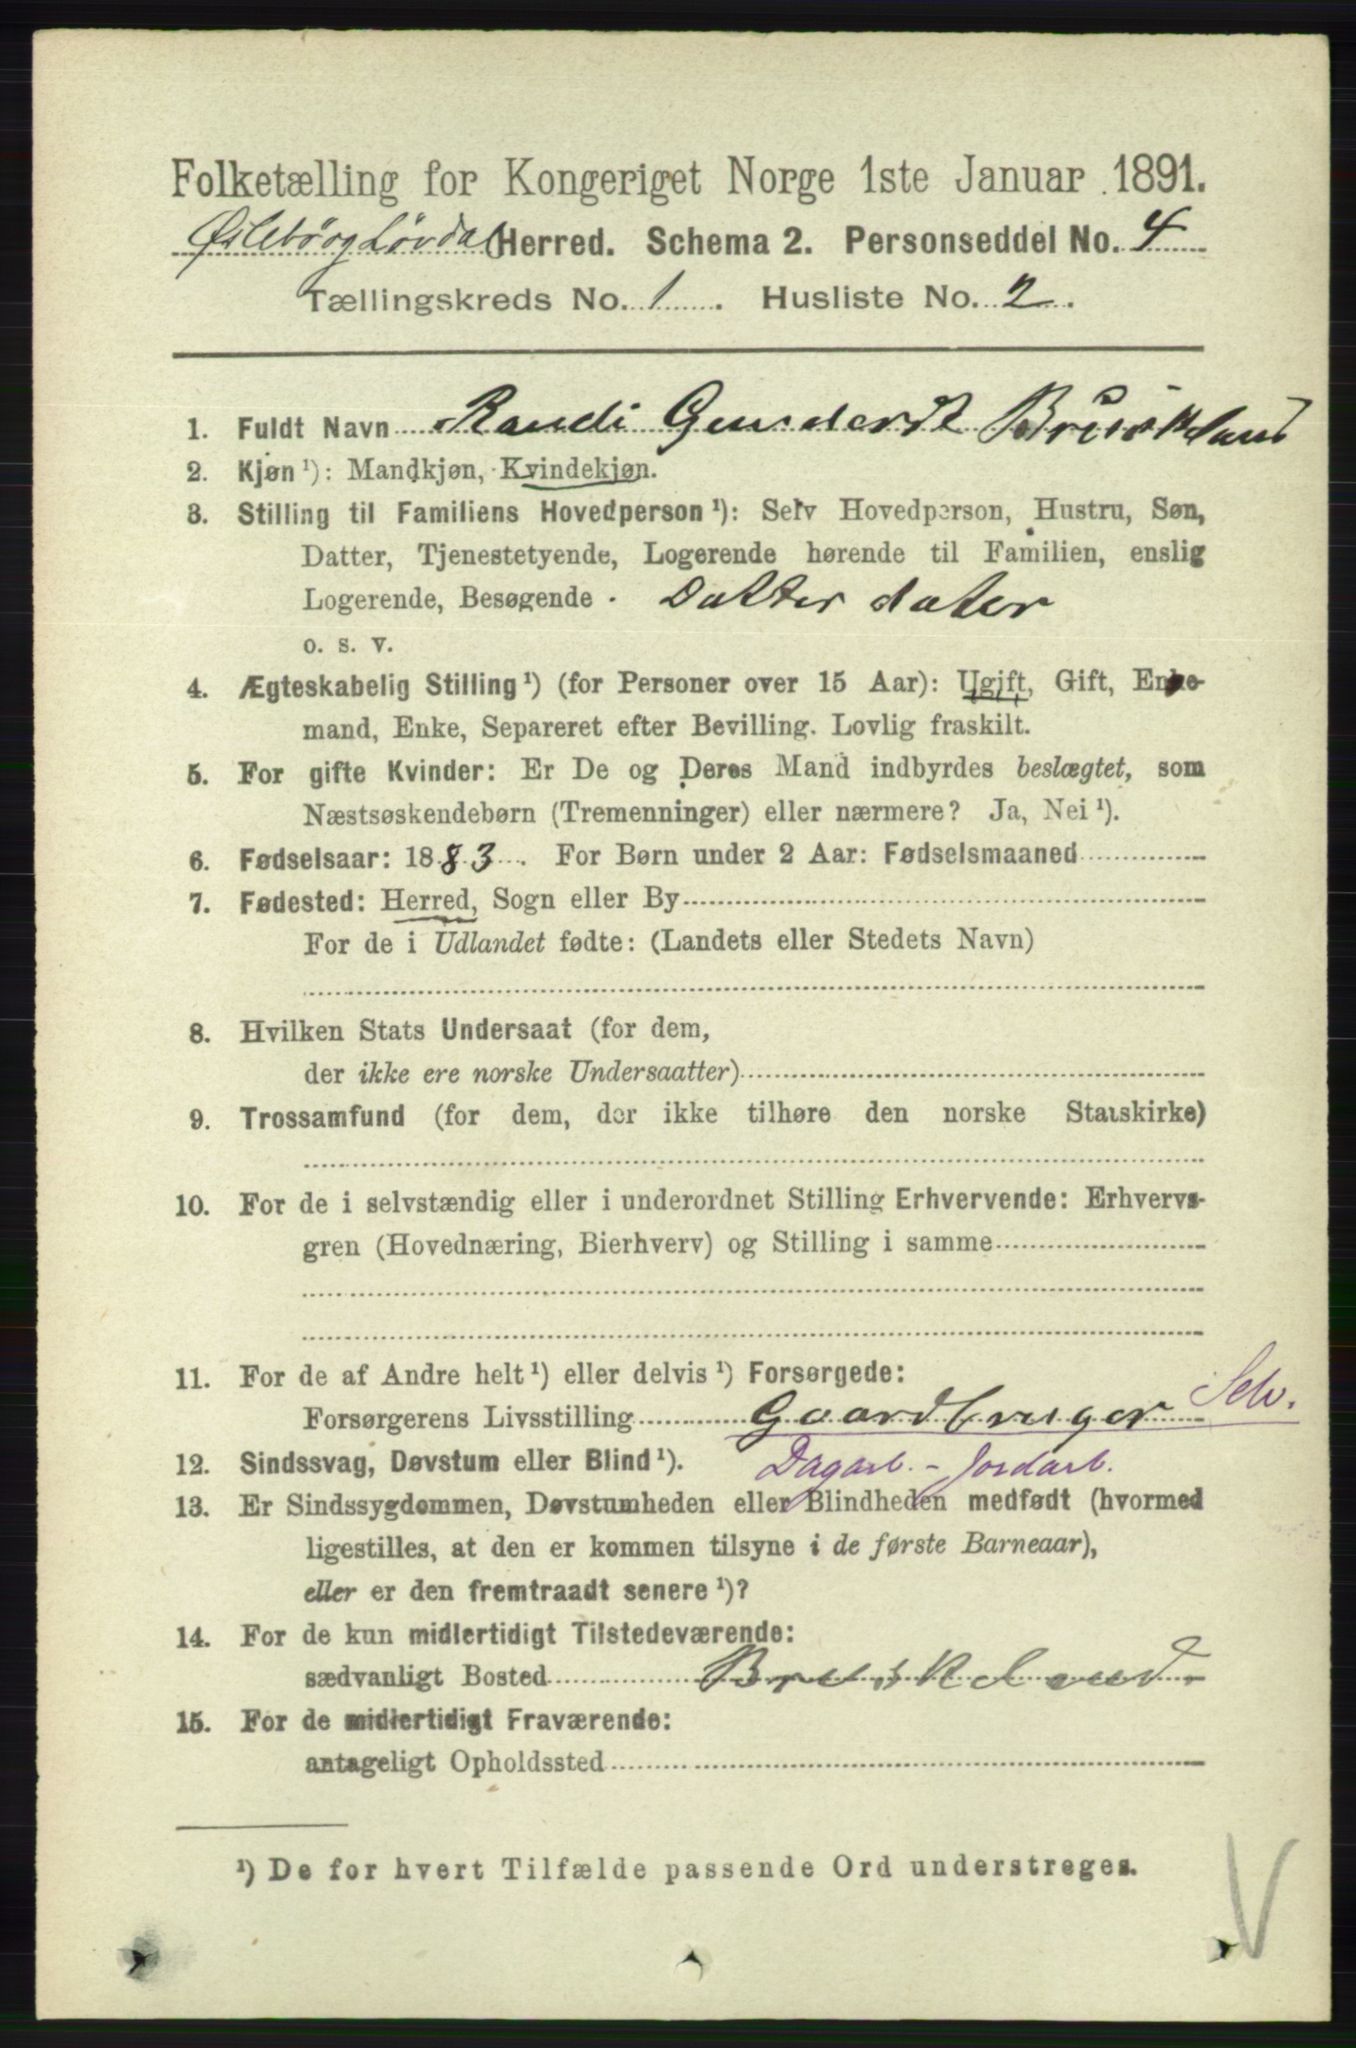 Folketælling for Kongeriget Norge 1ste Januar 1891.
Øslebø og Løvdal Herred. Schema 2. Personseddel No. 4
Tællingskreds No. 1. Husliste No. 2.
1. Fuldt Navn Randi Gundersdt Bruskland
2. Kjøn ¹): Mandkjøn, Kvindekjøn.
3. Stilling til Familiens Hovedperson ¹): Selv Hovedperson, Hustru, Søn,
Datter, Tjenestetyende, Logerende hørende til Familien, enslig
Logerende, Besøgende · Datter dater
o. s. v.
4. Ægteskabelig Stilling ¹) (for Personer over 15 Aar): Ugift, Gift, Enke-
mand, Enke, Separeret efter Bevilling. Lovlig fraskilt.
5. For gifte Kvinder: Er De og Deres Mand indbyrdes beslægtet, som
Næstsøskendebørn (Tremenninger) eller nærmere? Ja, Nei ¹).
6. Fødselsaar: 1883. For Børn under 2 Aar: Fødselsmaaned
7. Fødested: Herred, Sogn eller By
For de i Udlandet fødte: (Landets eller Stedets Navn)
8. Hvilken Stats Undersaat (for dem,
der ikke ere norske Undersaatter)
9. Trossamfund (for dem, der ikke tilhøre den norske Statskirke)
10. For de i selvstændig eller i underordnet Stilling Erhvervende: Erhvervs-
gren (Hovednæring, Bierhverv) og Stilling i samme
11. For de af Andre helt ¹) eller delvis ¹) Forsørgede:
Forsørgerens Livsstilling Gaardbruger Selv.
12. Sindssvag, Døvstum eller Blind ¹). Dagarb. - Jordarb.
13. Er Sindssygdommen, Døvstumheden eller Blindheden medfødt (hvormed
ligestilles, at den er kommen tilsyne i de første Barneaar),
eller er den fremtraadt senere ¹)?
14. For de kun midlertidigt Tilstedeværende:
sædvanligt Bosted Bruskland
15. For de midlertidigt Fraværende:
antageligt Opholdssted
¹) De for hvert Tilfælde passende Ord understreges.
V